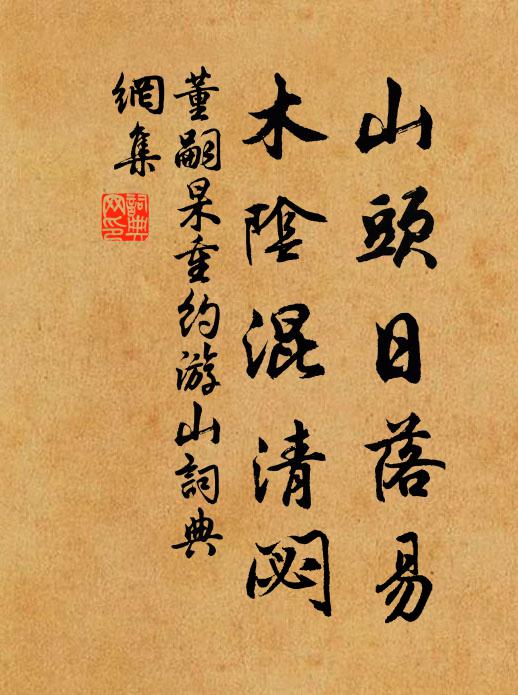 山頭日落易
木陰混清閟
董嗣杲重約游山詞典
網集
詞典
网印